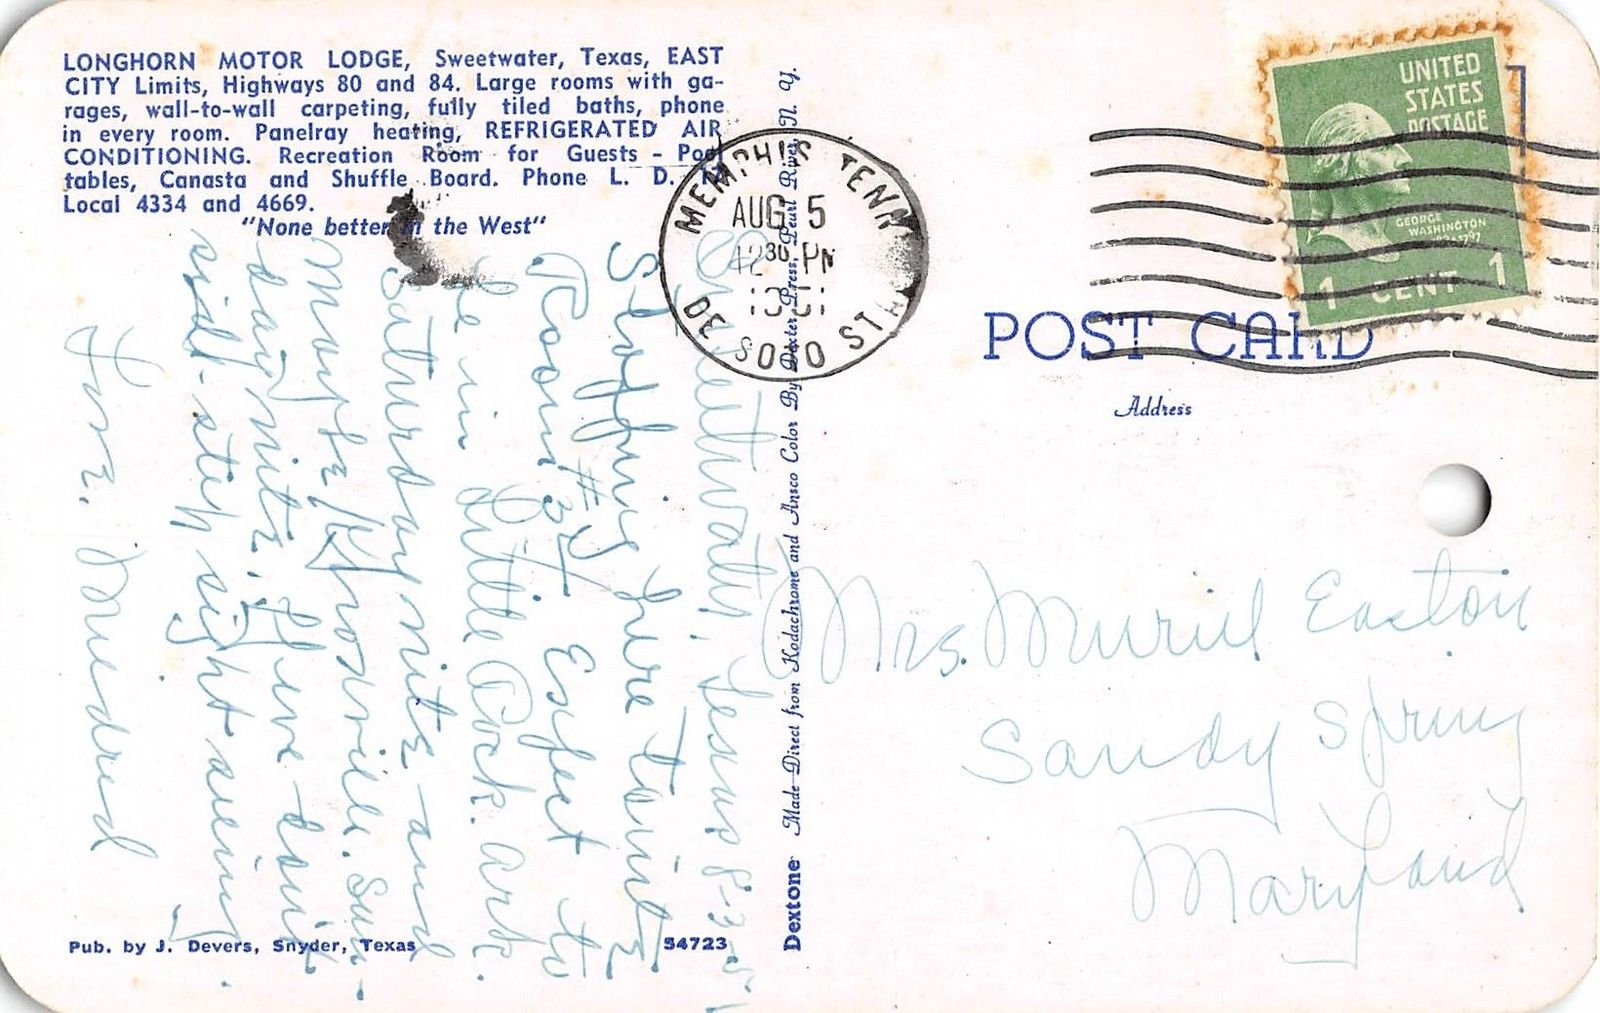 LONGHORN MOTOR LODGE, Sweetwater, Texas, EAST
CITY Limits, Highways 80 and 84. Large rooms with ga-
rages, wall-to-wall carpeting, fully tiled baths, phone
in every room. Panelray heating, REFRIGERATED AIR
CONDITIONING. Recreation Room for Guests - Pool
tables, Canasta and Shuffle Board. Phone L. D.
Local 4334 and 4669.
"None better in the West"
Sweetwater, Texas 8-3-51
Stopping here tonite
Room #32 Expect to
be in Little Rock. Ark.
Saturday nite and
maybe Knoxville. Sun-
day nite. Have done
sight seeing
Love. Mildred
Pub. by J. Devers, Snyder, Texas
54723
Dextone Made Direct from Kodachrome and Ansco Color By Dexter Press, Pearl River, N. Y.
MEMPHIS TENN
AUG 5
12 30 PM
1951
SOSO STA
UNITED
STATES
POSTAGE
GEORGE
WASHINGTON
1 CENT 1
POST CARD
Address
Mrs. Muriel Easton
Sandy Spring
Maryland